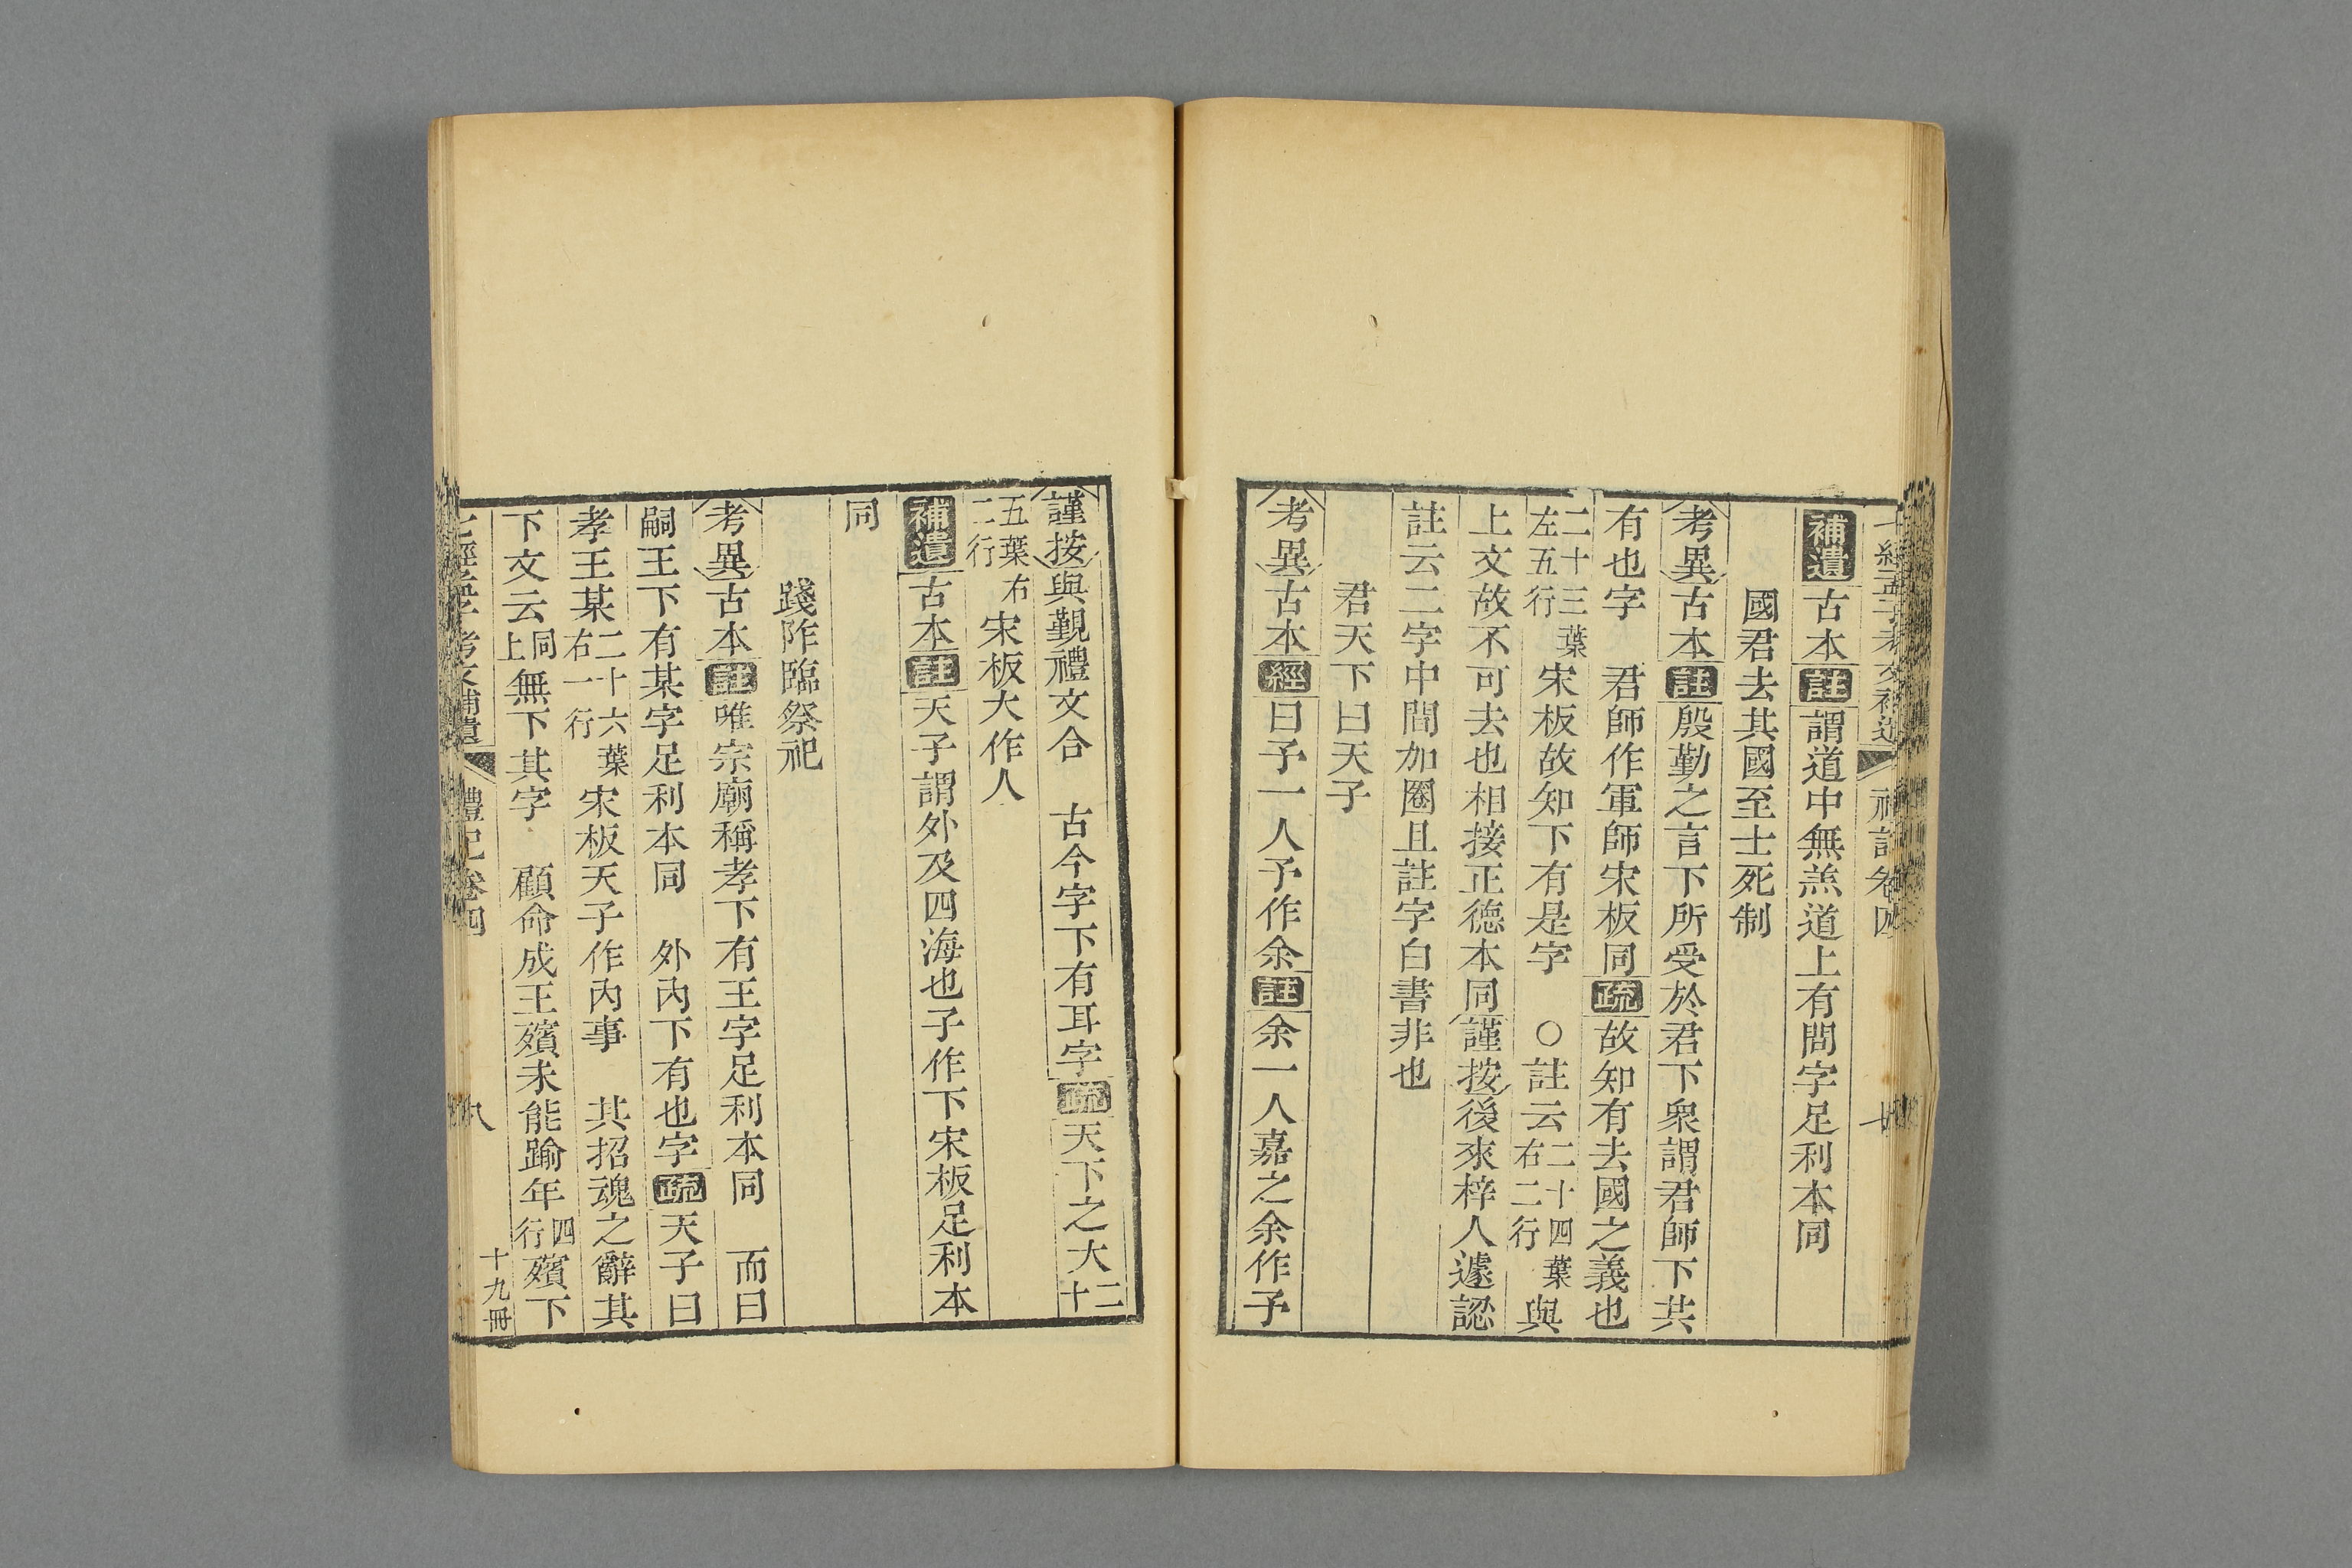 補遺古本註謂道中無恙道上有間字足利本同
國君去其國至士死制
考異古本註殷勤之言下所受於君下衆謂君師下共
有也字 君師作軍師宋板同疏故知有去國之義也
二十三葉左五行宋板故知下有是字 ○註云二十四葉右二行與
上文故不可去也相接正德本同謹按後來梓人遽認
註云二字中間加圈且註字白書非也
君天下曰天子
考異古本經曰予一人予作余註余一人嘉之余作予
謹按與覲禮文合 古今字下有耳字疏天下之大二十
五葉右二行宋板大作人
補遺古本註天子謂外及四海也子作下宋板足利本
同
踐阼臨祭祀
考異古本註唯宗廟稱孝下有王字足利本同 而曰
嗣王下有某字足利本同 外內下有也字疏天子曰
孝王某二十六葉右一行宋板天子作內事 其招魂之辭其
下文云同上無下其字 顧命成王殯未能踰年四行殯下
考文補遺 禮記卷四 八 十九冊